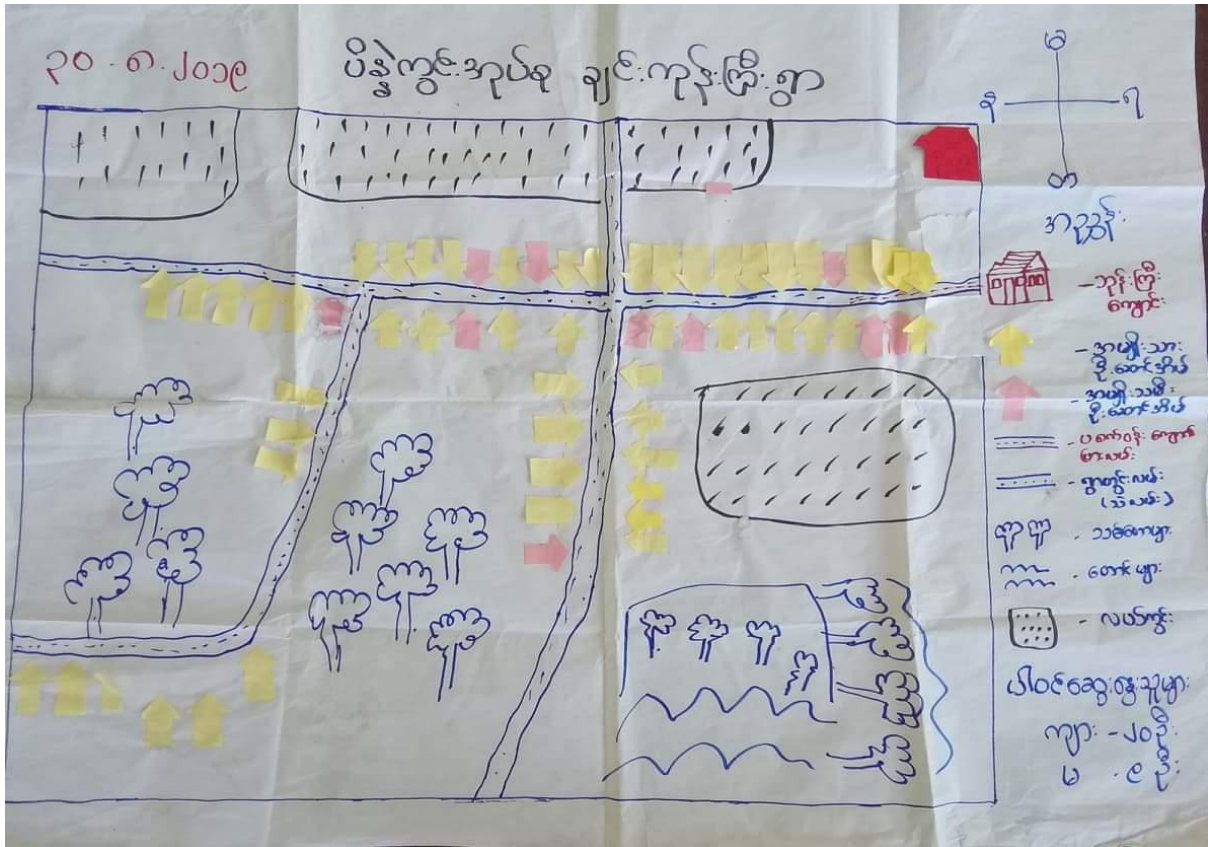 ၃၀.၈.၂၀၁၉
ပိန္နဲကွင်းအုပ်စု ချင်းကုန်းကြီးရွာ
မ
န
ရ
တ
အညွှန်း
- ဘုန်းကြီး
ကျောင်း
- အမျိုးသား
ဦးဆောင်အိမ်
- အမျိုးသမီး
ဦးဆောင်အိမ်
- ရွာတွင်းလမ်း
- သစ်တောများ
- တောင်များ
- လယ်ကွင်း
ပါဝင်ဆွေးနွေးသူများ
ကျား - ၂၀ ဦး
မ - ၉ ဦး